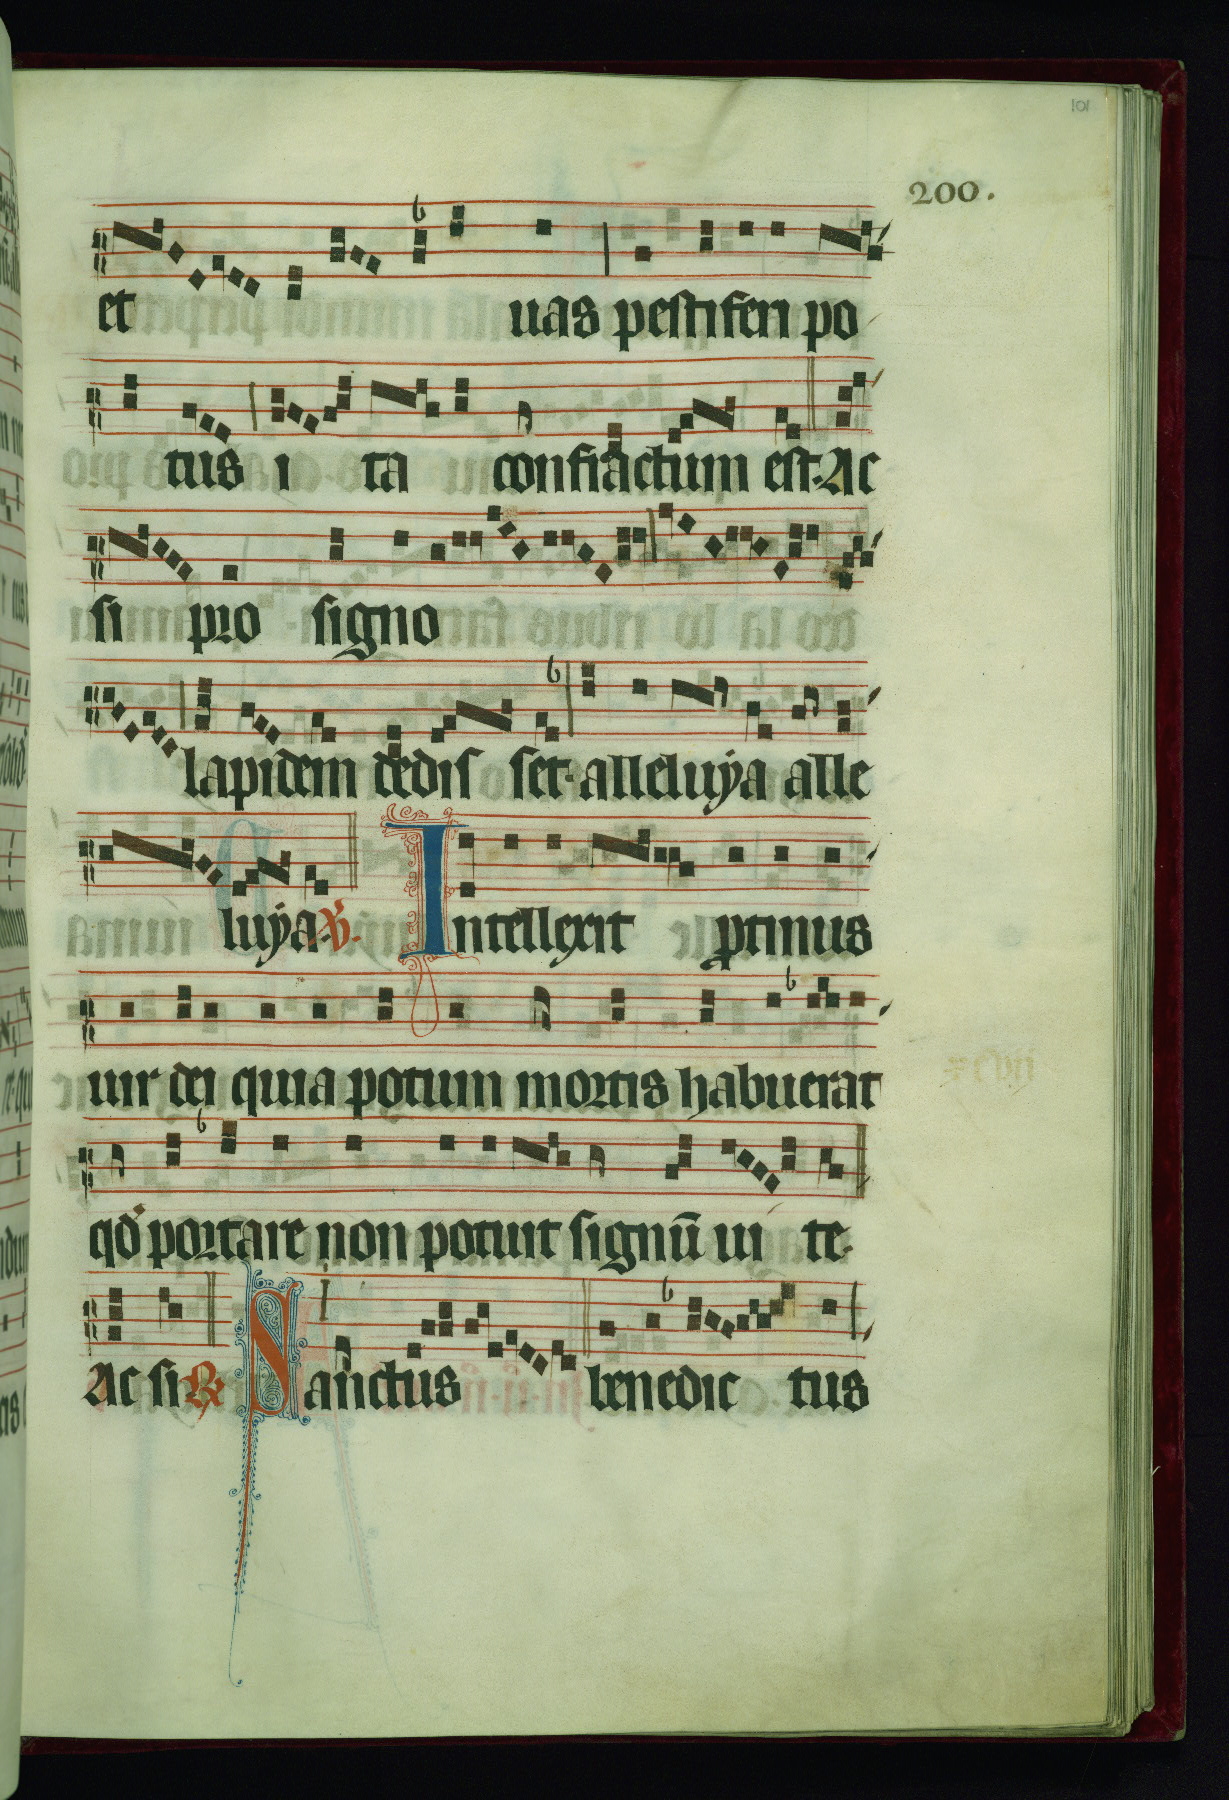 101
200.
et uas pestiferi po
tus i ta confractum est. Ac
si pro signo
lapidem dedis set. alleluya alle
luya. ℣. Intellexit ꝓtinus
uir dei quia potum mortis habuerat
qď portare non potuit signū ui te.
Ac si ℟ Sanctus benedic tus